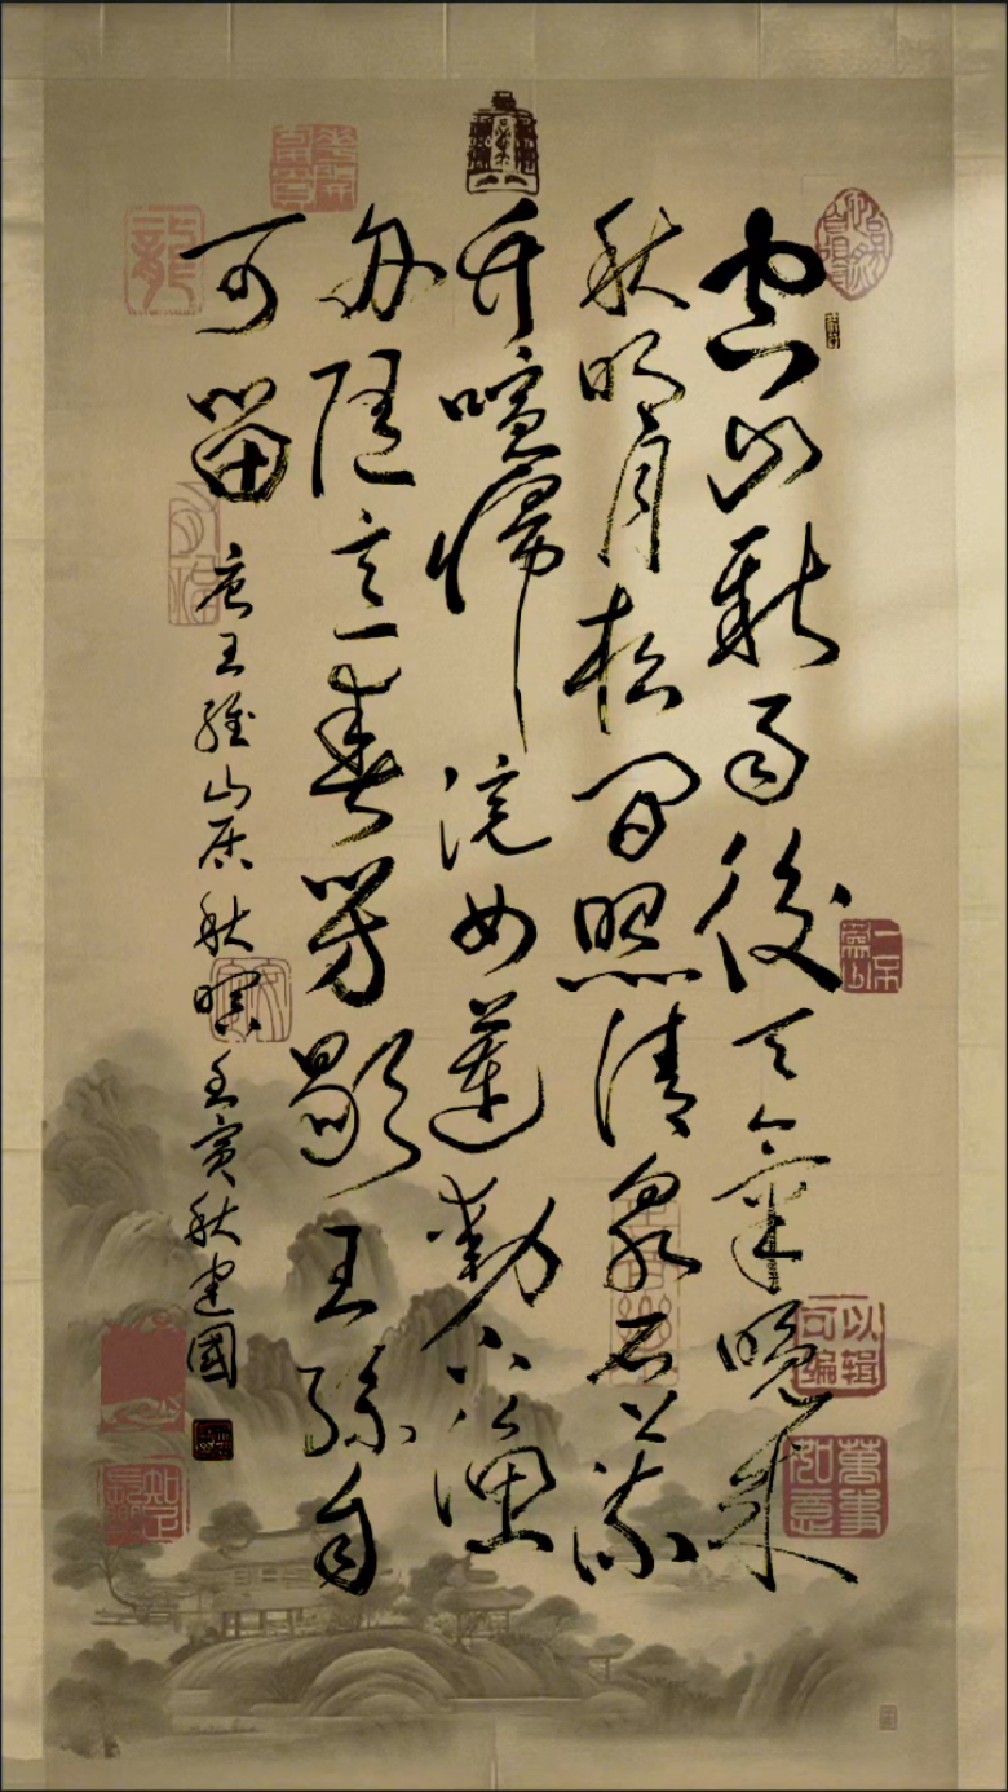 空山新雨後天氣晚來
秋明月松間照清泉石上流
竹喧歸浣女蓮動下漁
舟隨意春芳歇王孫自
可留
唐王維山居秋暝壬寅秋建國
龍
以辑可编
萬事如意